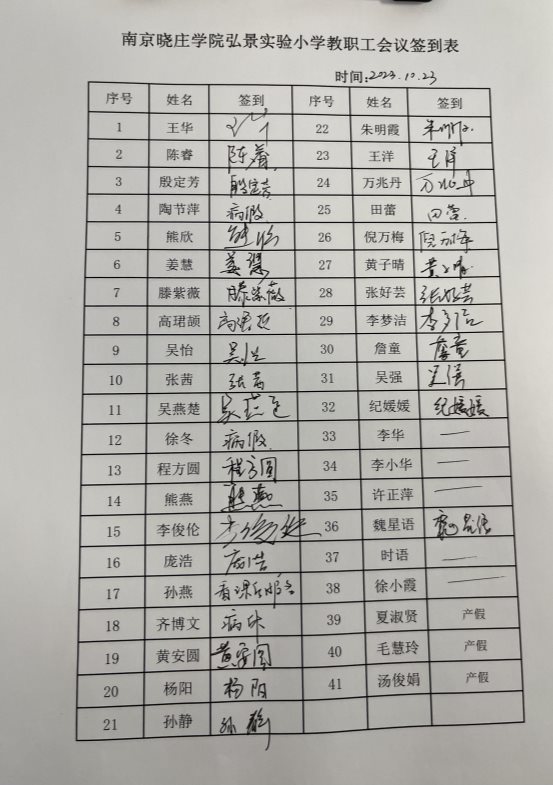 南京晓庄学院弘景实验小学教职工会议签到表
时间:2023.10.23
序号 姓名 签到 序号 姓名 签到
1 王华 22 朱明霞
2 陈睿 23 王洋 王洋
3 殷定芳 殷定芳 24 万兆丹 万兆丹
4 陶节萍 病假 25 田蕾 田蕾
5 熊欣 熊欣 26 倪万梅 倪万梅
6 姜慧 姜慧 27 黄子晴 黄子晴
7 滕紫薇 滕紫薇 28 张好芸 张好芸
8 高珺颉 29 李梦洁
9 吴怡 吴怡 30 詹童 詹童
10 张茜 张茜 31 吴强
11 吴燕楚 32 纪媛媛 纪媛媛
12 徐冬 病假 33 李华 —
13 程方圆 程方圆 34 李小华 —
14 熊燕 熊燕 35 许正萍 —
15 李俊伦 36 魏星语 魏星语
16 庞浩 37 时语 —
17 孙燕 38 徐小霞 —
18 齐博文 病休 39 夏淑贤 产假
19 黄安圆 黄安圆 40 毛慧玲 产假
20 杨阳 杨阳 41 汤俊娟 产假
21 孙静 孙静